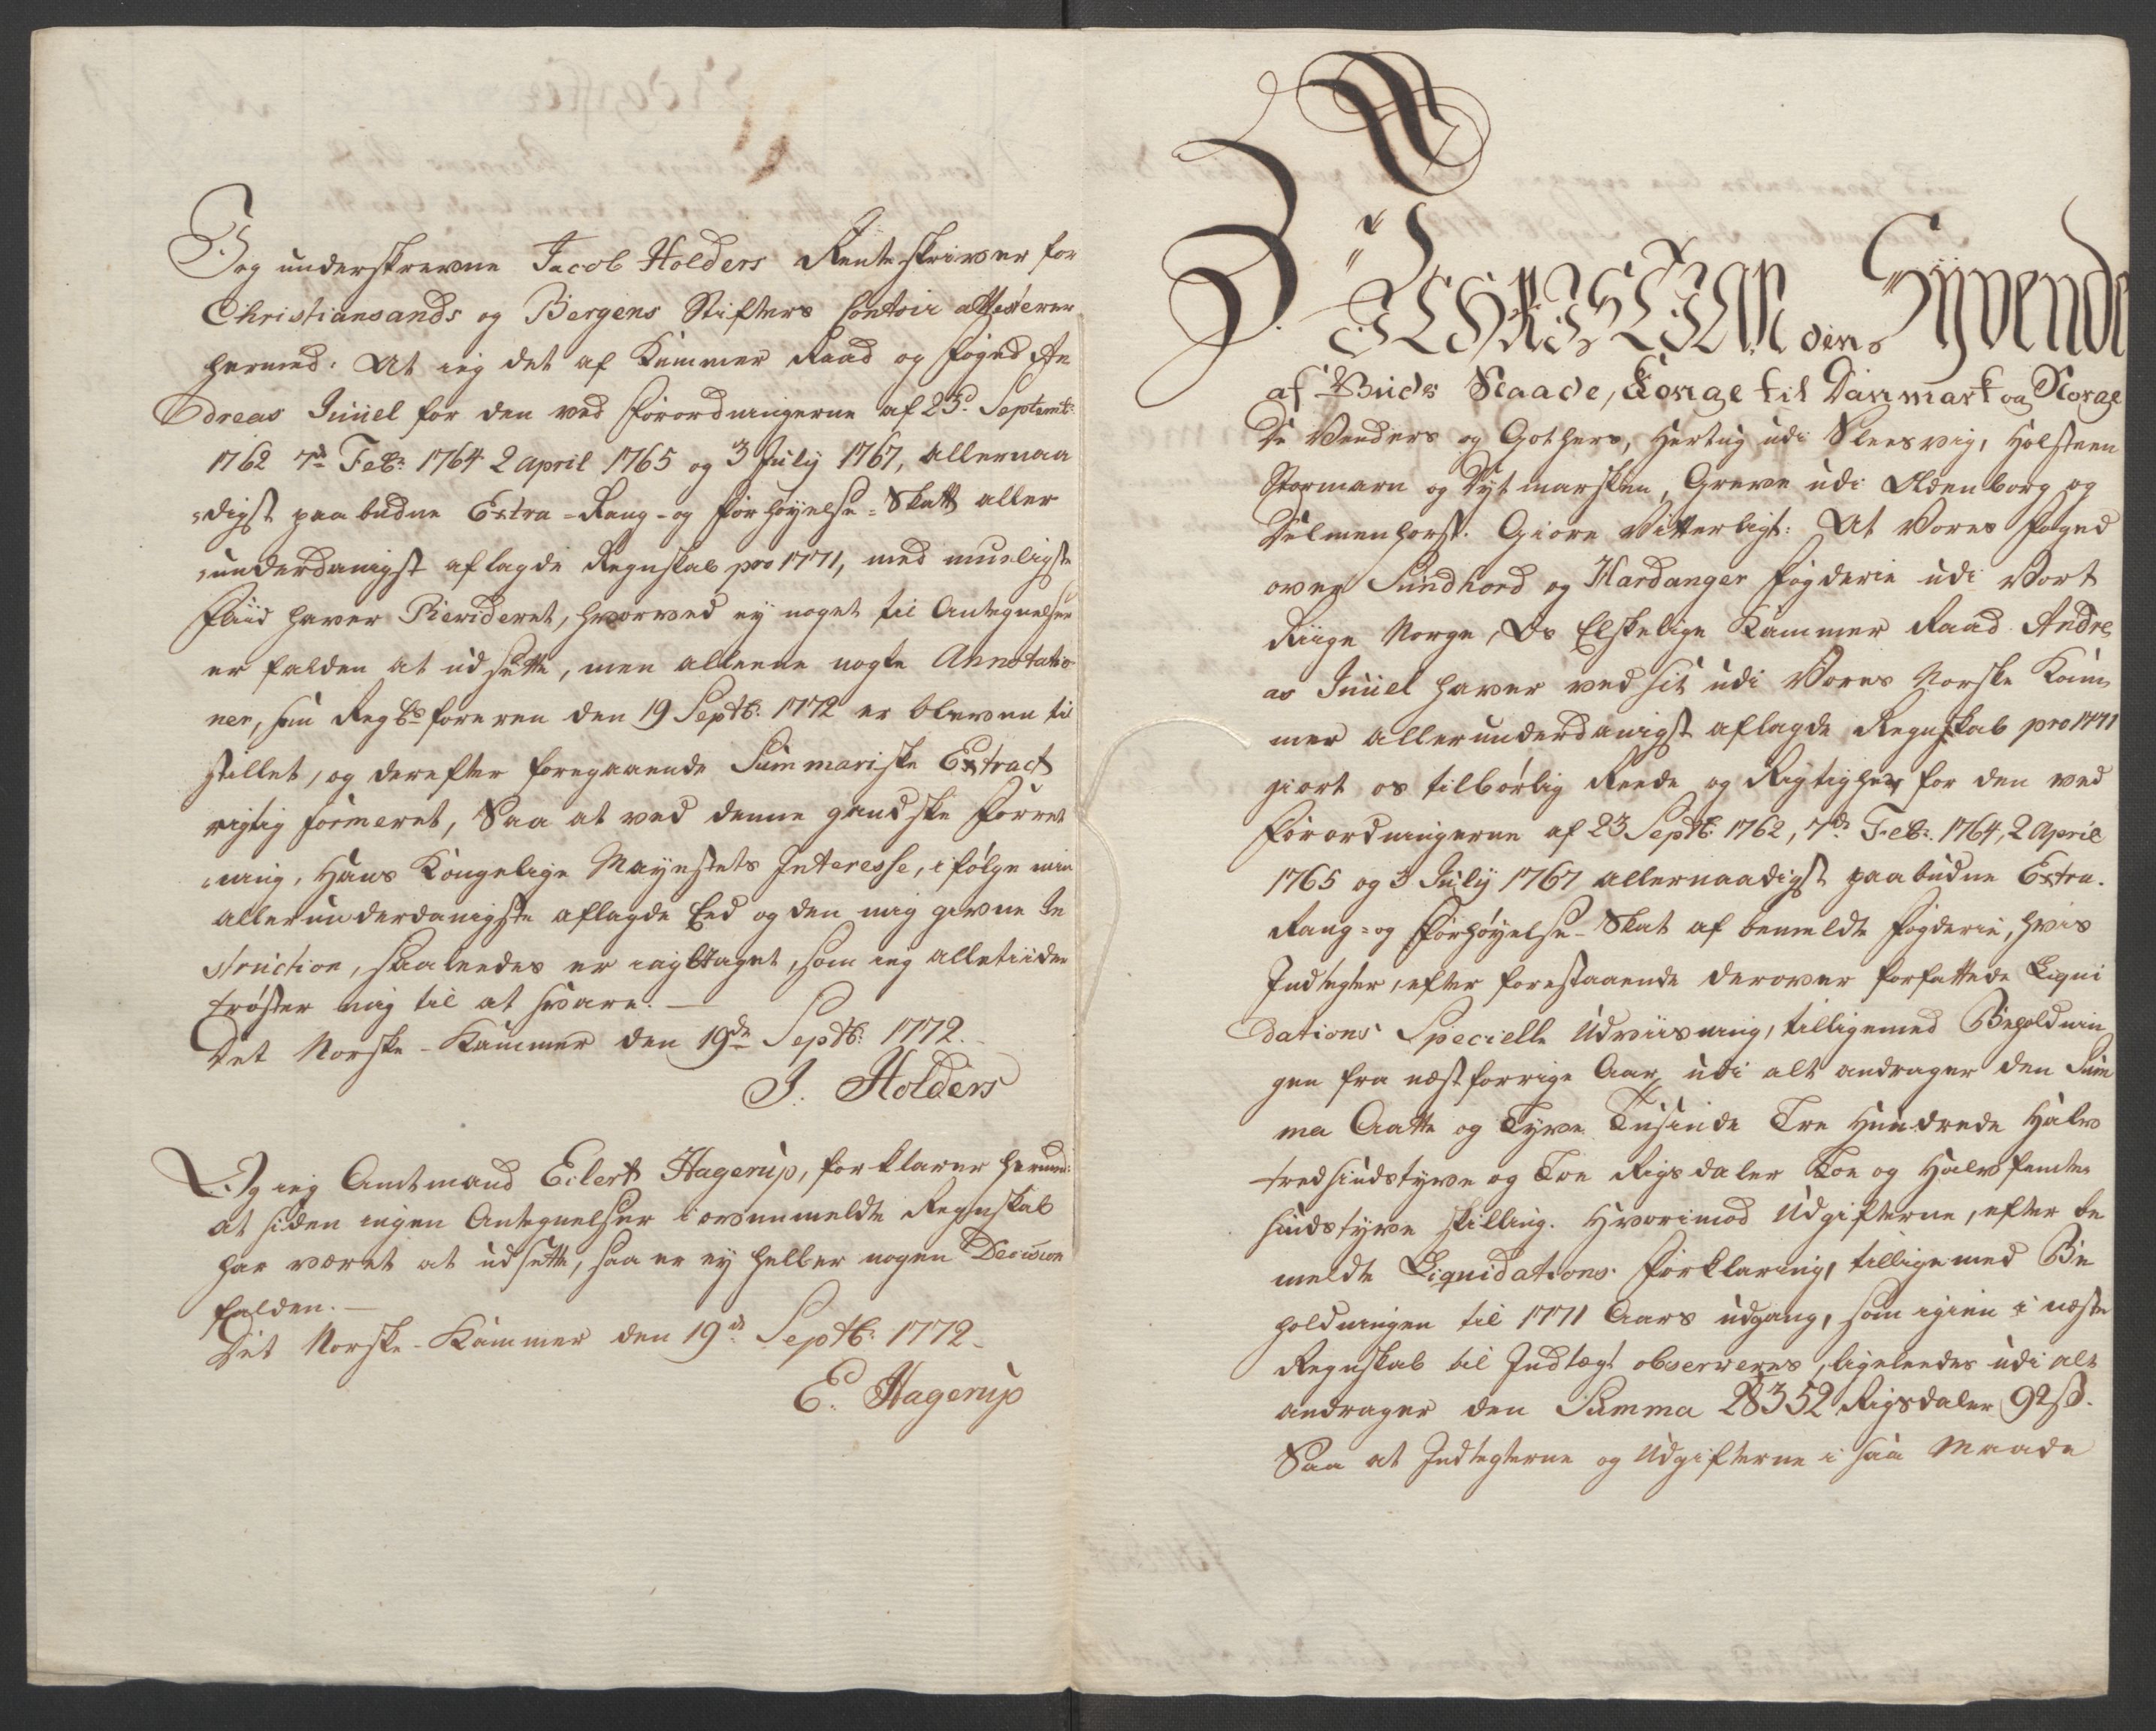 Jeg underskrevne Jacob Holders Renteskriver for
Christiansands og Bergens Stifters Contoir attesterer
hermed: At ieg det af Kammer Raad og Foged An
dreas Juuel for den ved Forordningerne af 23d Septembr:
1762 7de Febr: 1764 2 April 1765 og 3 July 1767, allernaa
digst paabudne Extra-Rang- og Forhøyelse-Skatt aller
underdanigst aflagde Regnskab pro 1771, med mueligste
Fliid haver Revideret, hvorved ey noget til Antegnelser
er falden at udsætte, men alleene nogle Annotatio
ner, som Regbs føreren den 19 Septbr: 1772 er bleven til
stillet, og derefter foregaaende Summariske Extract
rigtig formeret, Saa at ved denne gandske Forret
ning, Hans Kongelige Mayestets Interesse, i følge min
allerunderdanigste aflagde Eed og den mig givne In
struction, saaleedes er iagttaget, som ieg alletiider
trøster mig til at svare.
Det Norske-Kammer den 19de Septbr: 1772.
J. Holders
Og ieg Amtmand Eilert Hagerup, forklarer herved:
at siden ingen Antegnelser i ovenmeldte Regnskab
har været at udsætte, saa er ey heller nogen Decision
falden.
Det Norske-Kammer den 19de Septbr: 1772
E. Hagerup
Vi CHRISTIAN den Syvende
af Guds Naade, Konge til Danmark og Norge
De Venders og Gothers, Hertug udi Sleesvig, Holsteen
Stormarn og Dytmarsken, Greve udi Oldenborg og
Delmenhorst. Giøre Vitterligt: At Vores Foged
over Sundhord og Hardanger Fogderie udi Vort
Riige Norge, Os Elskelige Kammer Raad Andre
as Juuel haver ved sit udi Vores Norske Kam
mer allerunderdanigst aflagde Regnskab pro 1771
giort os tilbørlig Reede og Rigtighed for den ved
Forordningerne af 23 Septbr: 1762, 7de Febr: 1764, 2 April
1765 og 3 July 1767 allernaadigst paabudne Extra-
Rang- og Forhøyelse-Skat af bemeldte Fogderie, hvis
Indtegter, efter forestaaende derover forfattede Liqui
dations Specielle Udviisning, tilligemed Beholdnin
gen fra næstforrige Aar, udi alt andrager den Sum
ma Aatte og Tyve Tusinde Tre Hundrede Halv
tredsindstyve og Toe Rigsdaler Toe og Halvfemte
sindstyve skilling. Hvorimod Udgifterne, efter be
meldte Liquidations Forklaring, tilligemed Be
holdningen til 1771 Aars udgang, som igien i næste
Regnskab til Indtægt observeres, ligeleedes udi alt
andrager den Summa 28352 Rigsdaler 92 s.
Saa at Indtegterne og Udgifterne i saa Maade